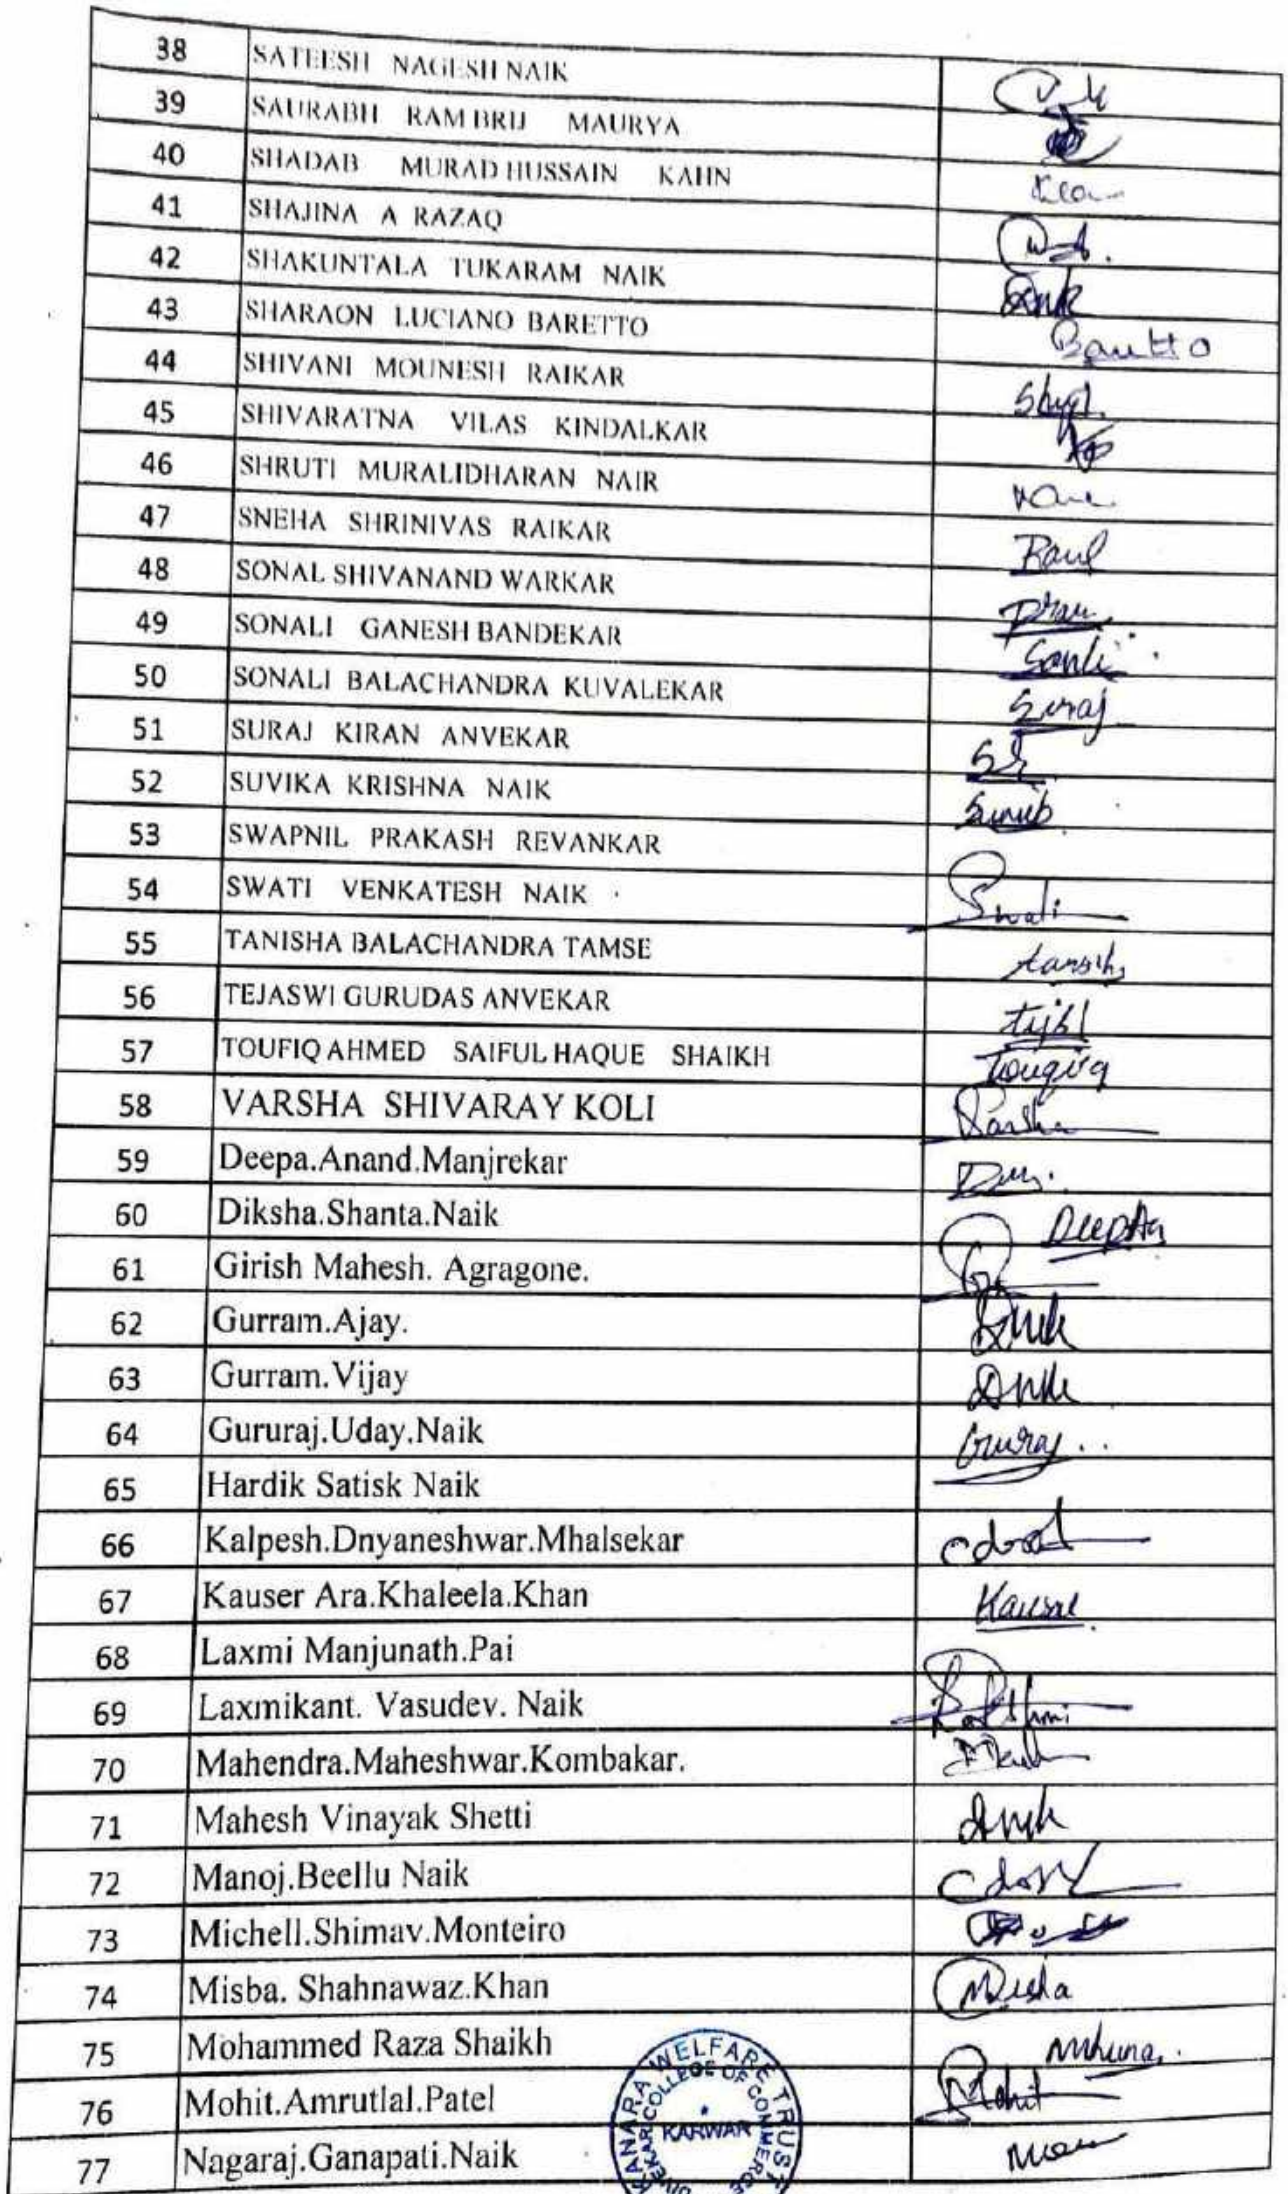 38 SATEESH NAGESH NAIK
39 SAURABH RAM BRIJ MAURYA
40 SHADAB MURAD HUSSAIN KAHN
41 SHAJINA A RAZAQ
42 SHAKUNTALA TUKARAM NAIK
43 SHARAON LUCIANO BARETTO
44 SHIVANI MOUNESH RAIKAR
45 SHIVARATNA VILAS KINDALKAR
46 SHRUTI MURALIDHARAN NAIR
47 SNEHA SHRINIVAS RAIKAR
48 SONAL SHIVANAND WARKAR
49 SONALI GANESH BANDEKAR
50 SONALI BALACHANDRA KUVALEKAR Suraj
51 SURAJ KIRAN ANVEKAR
52 SUVIKA KRISHNA NAIK
53 SWAPNIL PRAKASH REVANKAR
54 SWATI VENKATESH NAIK Swati
55 TANISHA BALACHANDRA TAMSE
56 TEJASWI GURUDAS ANVEKAR
57 TOUFIQ AHMED SAIFUL HAQUE SHAIKH
58 VARSHA SHIVARAY KOLI Varsha
59 Deepa.Anand.Manjrekar
60 Diksha.Shanta.Naik
61 Girish Mahesh. Agragone.
62 Gurram.Ajay.
63 Gurram.Vijay
64 Gururaj.Uday.Naik
65 Hardik Satisk Naik
66 Kalpesh.Dnyaneshwar.Mhalsekar
67 Kauser Ara.Khaleela.Khan
68 Laxmi Manjunath.Pai
69 Laxmikant. Vasudev. Naik
70 Mahendra.Maheshwar.Kombakar.
71 Mahesh Vinayak Shetti
72 Manoj.Beellu Naik
73 Michell.Shimav.Monteiro
74 Misba. Shahnawaz.Khan
75 Mohammed Raza Shaikh
76 Mohit.Amrutlal.Patel Mohit
77 Nagaraj.Ganapati.Naik
WELFARE TRUST
COLLEGE OF COMMERCE
KARWAR